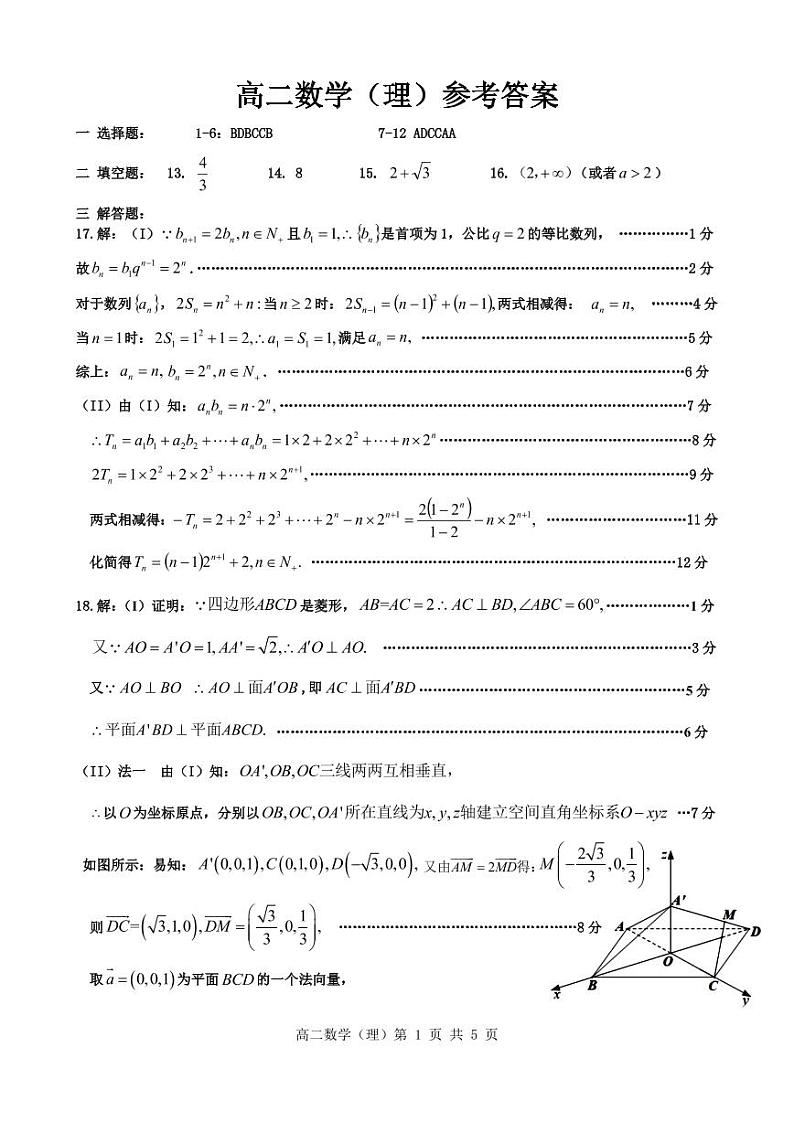 高二数学（理）参考答案
一 选择题： 1-6：BDBCCB 7-12 ADCCAA
二 填空题： 13. 4/3 14. 8 15. 2+√3 16.（2，+∞）（或者 a > 2 ）
三 解答题：
17.解：（I）∵ b_{n+1} = 2b_n, n∈N_+ 且 b_1 = 1,∴ {b_n} 是首项为 1，公比 q = 2 的等比数列， ……………1 分
故 b_n = b_1q^{n-1} = 2^n .……………2 分
对于数列 {a_n}， 2S_n = n^2 + n : 当 n ≥ 2 时： 2S_{n-1} = (n-1)^2 + (n-1), 两式相减得： a_n = n, ………4 分
当 n = 1 时： 2S_1 = 1^2 + 1 = 2,∴ a_1 = S_1 = 1, 满足 a_n = n, ……………5 分
综上： a_n = n, b_n = 2^n, n∈N_+ . ……………6 分
（II）由（I）知： a_nb_n = n·2^n, ……………7 分
∴ T_n = a_1b_1 + a_2b_2 + ⋯ + a_nb_n = 1×2 + 2×2^2 + ⋯ + n×2^n ……………8 分
2T_n = 1×2^2 + 2×2^3 + ⋯ + n×2^{n+1}, ……………9 分
两式相减得： -T_n = 2 + 2^2 + 2^3 + ⋯ + 2^n - n×2^{n+1} = 2(1-2^n)/(1-2) - n×2^{n+1}, ……………11 分
化简得 T_n = (n-1)2^{n+1} + 2, n∈N_+. ……………12 分
18.解：（I）证明：∵四边形ABCD 是菱形， AB=AC = 2 ∴ AC ⊥ BD, ∠ABC = 60°, ……………1 分
又∵ AO = A'O = 1, AA' = √2,∴ A'O ⊥ AO. ……………3 分
又∵ AO ⊥ BO ∴ AO ⊥ 面A'OB ,即 AC ⊥ 面A'BD ……………5 分
∴平面A'BD ⊥ 平面ABCD. ……………6 分
（II）法一 由（I）知： OA',OB,OC三线两两互相垂直，
∴以 O 为坐标原点，分别以 OB,OC,OA'所在直线为x, y, z轴建立空间直角坐标系O - xyz …7 分
如图所示：易知： A'(0,0,1),C(0,1,0),D(-√3,0,0), 又由AM = 2MD得： M(-2√3/3,0,1/3),
则 DC=(√3,1,0),DM = (√3/3,0,1/3), ……………8 分
取 a = (0,0,1) 为平面 BCD 的一个法向量，
z
A'
M
A
D
O
B
C
x
y
高二数学（理）第 1 页 共 5 页